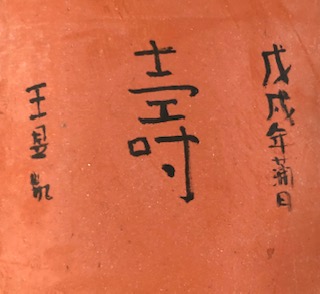 戊戌年蒲日
壽
王昱凱